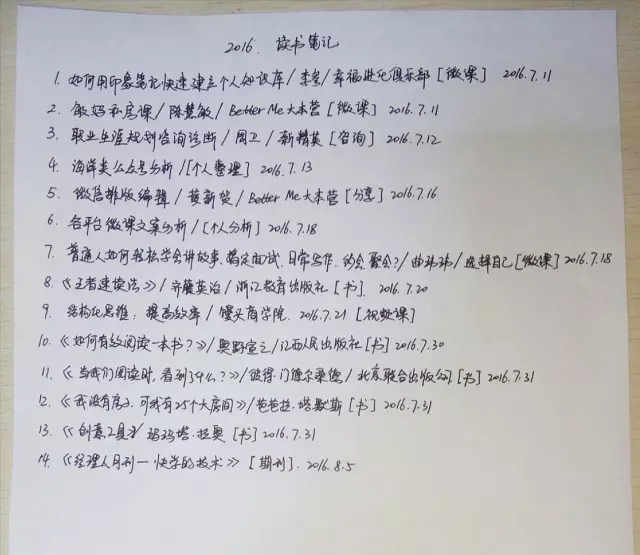 2016. 读书笔记
1. 如何用印象笔记快速建立个人知识库/李参/幸福进化俱乐部[微课] 2016.7.11
2. 敏妈私房课/陈慧敏/Better Me大本营[微课] 2016.7.11
3. 职业生涯规划咨询诊断/周卫/新精英[咨询] 2016.7.12
4. 海洋类公众号分析/[个人整理] 2016.7.13
5. 微信排版编辑/黄新贤/Better Me大本营[分享] 2016.7.16
6. 各平台微课文案分析/[个人分析] 2016.7.18
7. 普通人如何轻松学会讲故事、搞定面试、日常写作、约会、聚会?/曲玮玮/选择自己[微课] 2016.7.18
8.《王者速读法》/斉藤英治/浙江教育出版社[书]. 2016.7.20
9. 结构化思维:提高效率/馒头商学院. 2016.7.21 [视频课]
10.《如何有效阅读一本书?》/奥野宣之/江西人民出版社[书] 2016.7.30
11.《当我们阅读时,看到了什么?》/彼得·门德尔桑德/北京联合出版公司[书] 2016.7.31
12.《我没有房子,可我有25个大房间》/芭芭拉·塔默斯[书] 2016.7.31
13.《创意工具》玛玛塔·拉奥[书] 2016.7.31
14.《经理人月刊—快学的技术》[期刊]. 2016.8.5